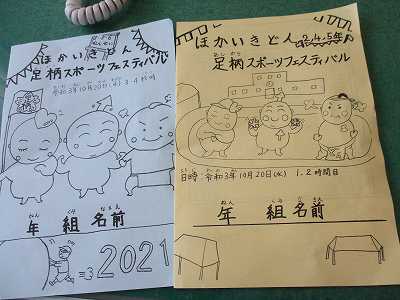 ほかいきどん
足柄スポーツフェスティバル
令和3年10月20日(水) 3・4校時
年 組 名前
ねん くみ なまえ
=3 2021
ほかいきどん 2,4,5年
あし がら
足柄スポーツフェスティバル
日時 令和3年10月20日(水) 1.2時間目
ねん くみ なまえ
年 組 名前